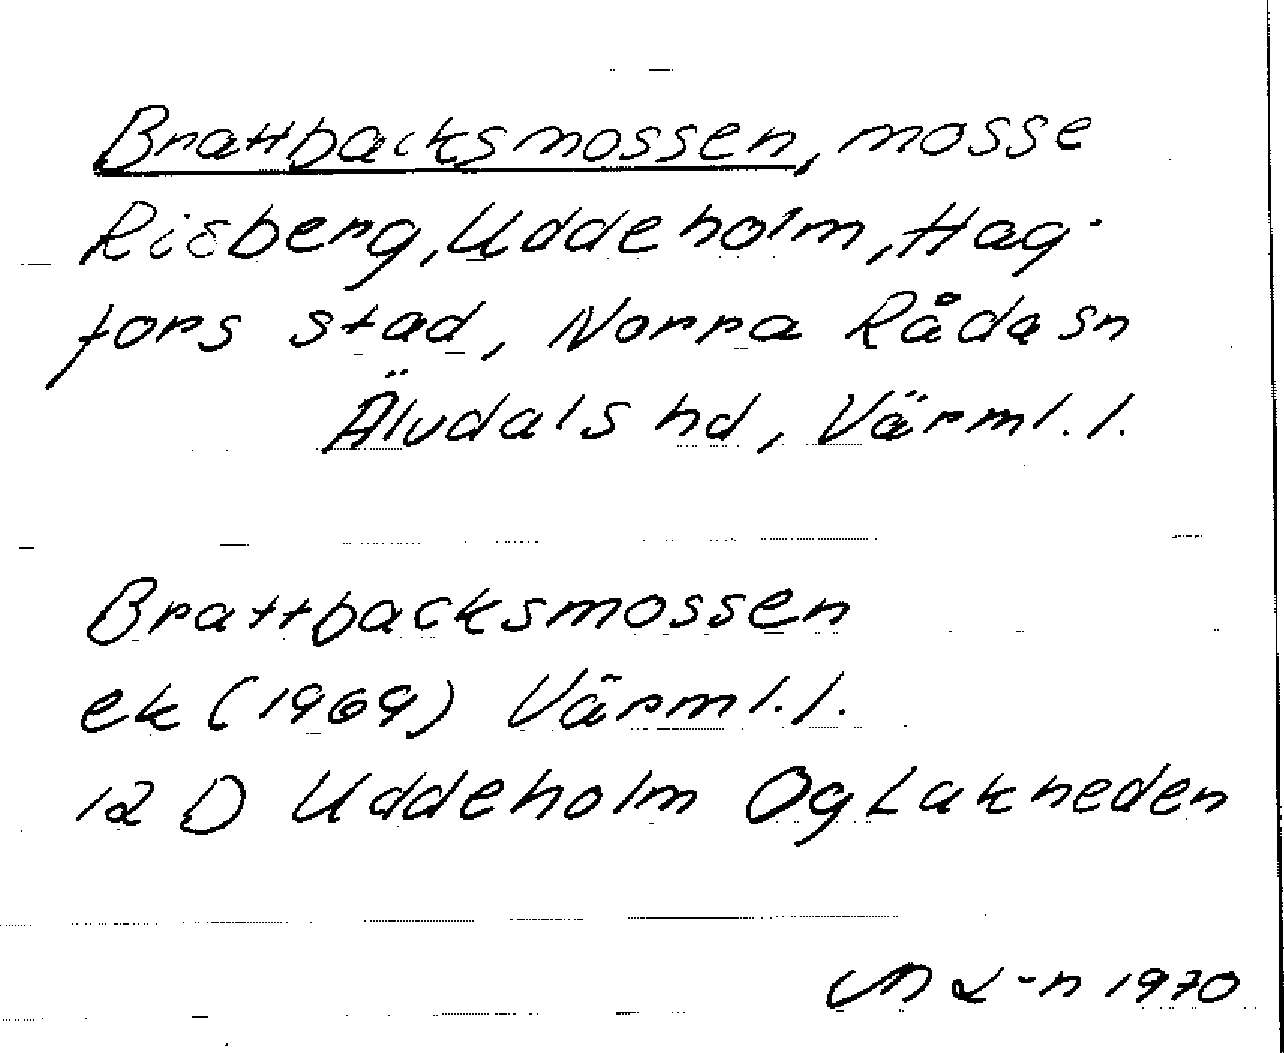 Brattbacksmossen, mosse
Risberg, Uddeholm, Hag-
fors stad, Norra Råda sn
Älvdals hd, Värml. l.
Brattbacksmossen
ek (1969) Värml. l.
12 D Uddeholm Og Lakheden
L-n 1970